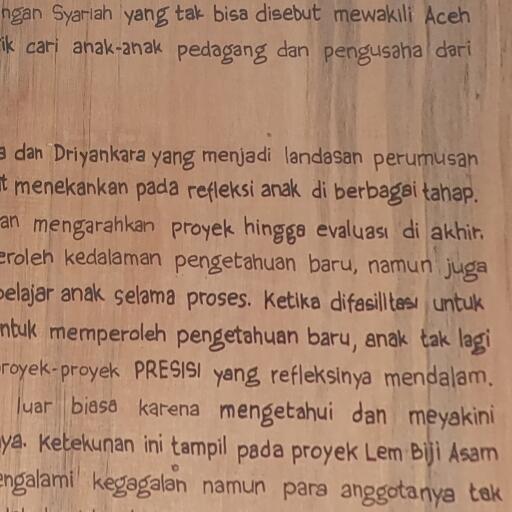 ngan Syariah yang tak bisa disebut mewakili Aceh
ik cari anak-anak pedagang dan pengusaha dari
a dan Driyankara yang menjadi landasan perumusan
t menekankan pada refleksi anak di berbagai tahap.
an mengarahkan proyek hingga evaluasi di akhir.
eroleh kedalaman pengetahuan baru, namun juga
belajar anak selama proses. Ketika difasilitasi untuk
ntuk memperoleh pengetahuan baru, anak tak lagi
royek-proyek PRESISI yang refleksinya mendalam.
luar biasa karena mengetahui dan meyakini
ya. Ketekunan ini tampil pada proyek Lem Biji Asam
engalami kegagalan namun para anggotanya tak